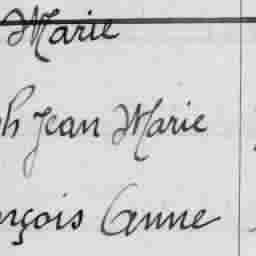 Marie
ph Jean Marie
nçois Anne